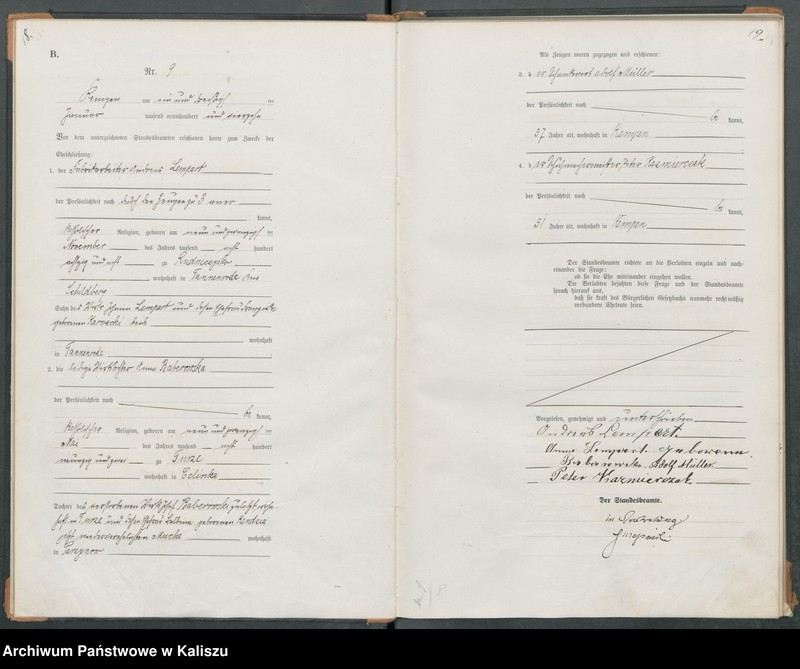 18.
B.
Nr. 9
Kempen am ein und dreißig ten
Januar tausend neunhundert und vierzehn
Vor dem unterzeichneten Standesbeamten erschienen heute zum Zwecke der
Eheschließung:
1. der Fabrikarbeiter Andreas Lempart
der Persönlichkeit nach durch den Zeugen zu 3
kannt,
katholischer Religion, geboren am neun und zwanzigsten
November des Jahres tausend acht hundert
achtzig und acht zu
wohnhaft in Tannenrode Kreis
Schildberg
Sohn des Wirts Johann Lempart und dessen Ehefrau
geborenen beide
wohnhaft
in Tannenrode
2. die ledige Wirtstochter Anna Baberowska
der Persönlichkeit nach
be kannt,
katholischer Religion, geboren am neun und zwanzigsten
Mai des Jahres tausend acht hundert
neunzig und zwei zu Turze
wohnhaft in Celinka
Tochter des verstorbenen Wirts Josef Baberowski zuletzt wohn-
haft in Turze und dessen Ehefrau geborenen
jetzt wiederverehelichten wohnhaft
in
19.
Als Zeugen waren zugezogen und erschienen:
3. der Schankwirt Adolf Müller
der Persönlichkeit nach
be kannt,
37 Jahre alt, wohnhaft in Kempen
4. der Schuhmachermeister Peter Kazmierczak
der Persönlichkeit nach
be kannt,
51 Jahre alt, wohnhaft in Kempen
Der Standesbeamte richtete an die Verlobten einzeln und nach-
einander die Frage:
ob sie die Ehe miteinander eingehen wollen.
Die Verlobten bejahten diese Frage und der Standesbeamte
sprach hierauf aus,
daß sie kraft des Bürgerlichen Gesetzbuchs nunmehr rechtmäßig
verbundene Eheleute seien.
Vorgelesen, genehmigt und unterschrieben
Andreas Lempart.
Anna Lempart geborene
Baberowska Adolf Müller
Peter Kazmierczak.
Der Standesbeamte.
in Vertretung
Archiwum Państwowe w Kaliszu